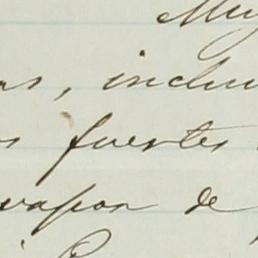 Muy
os, inclu
s fuertes
vapor de